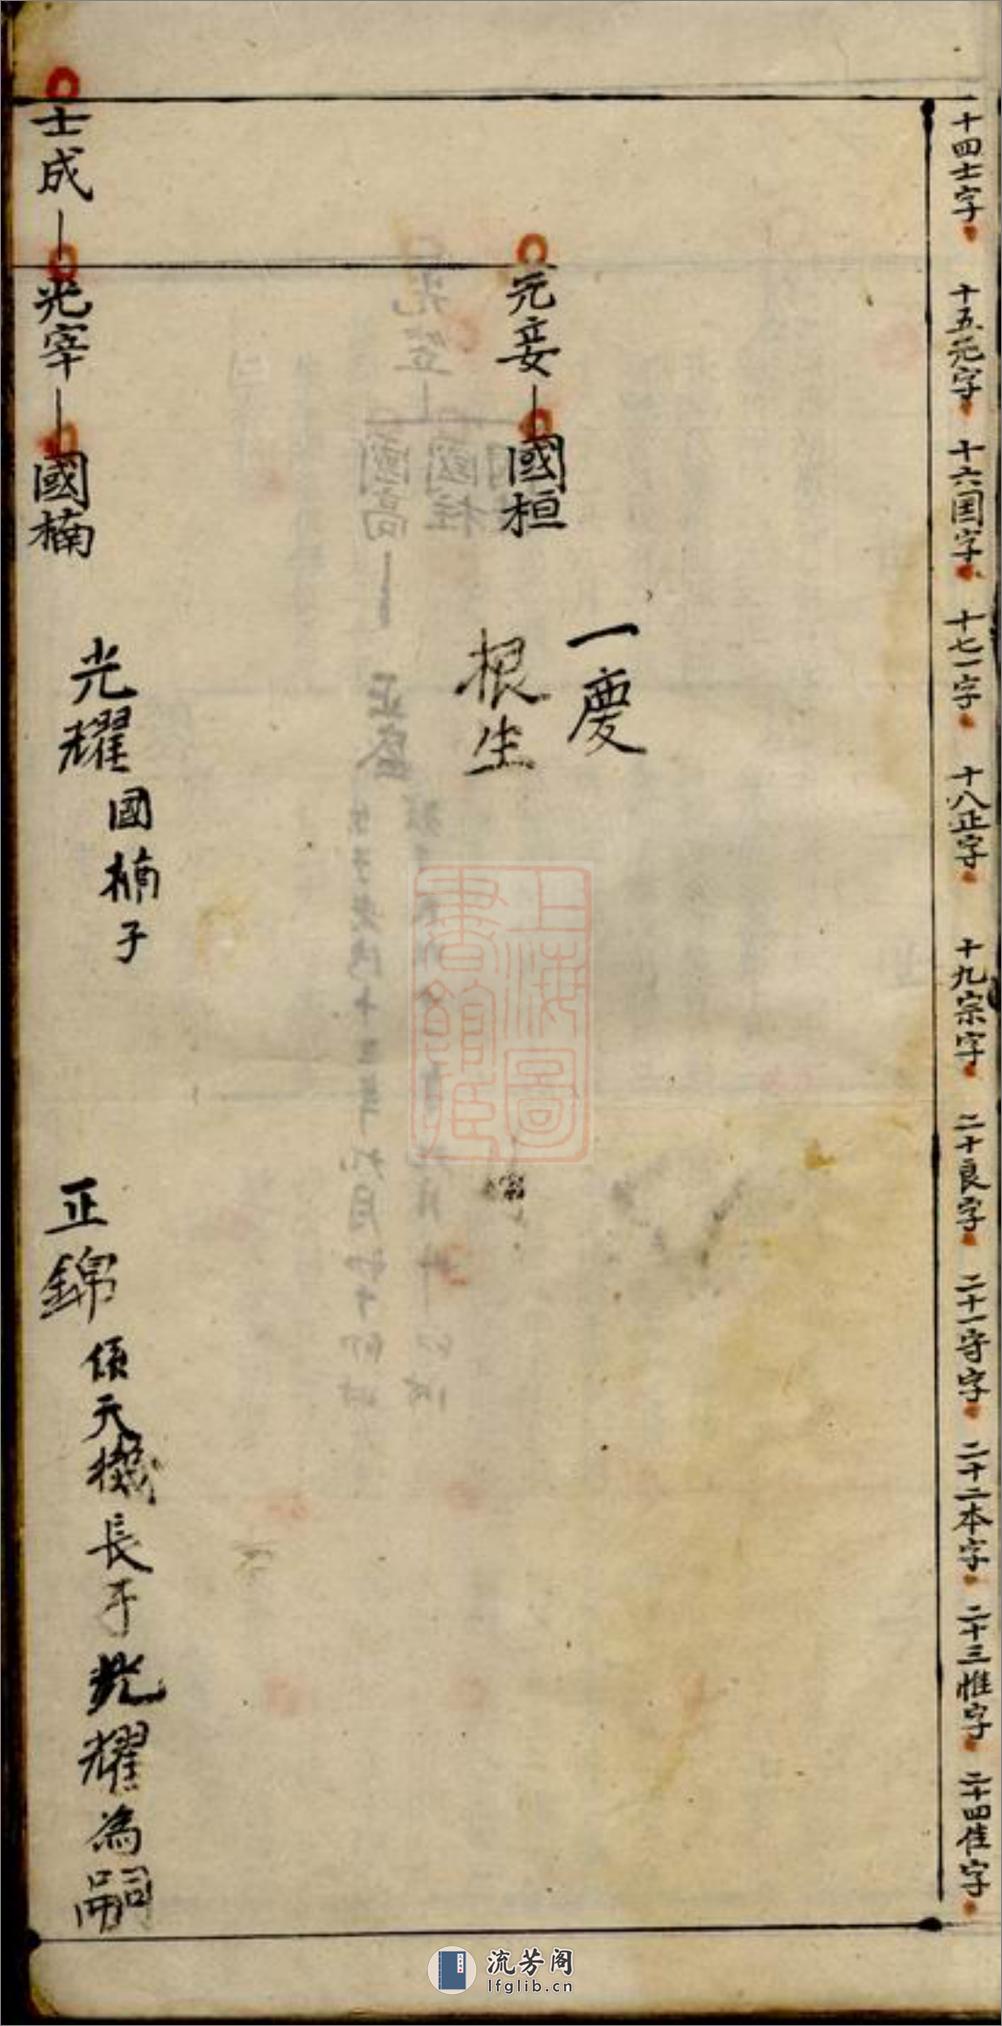 十四士字
十五元字
十六国字
十七一字
十八正字
十九宗字
二十良字
二十一守字
二十二本字
二十三惟字
二十四佳字
元妾
國桓
一慶
根生
士成
光宰
國楠
光耀國楠子
正錦
天機長子光耀為嗣
上海圖書館藏
流芳阁
lfglib.cn